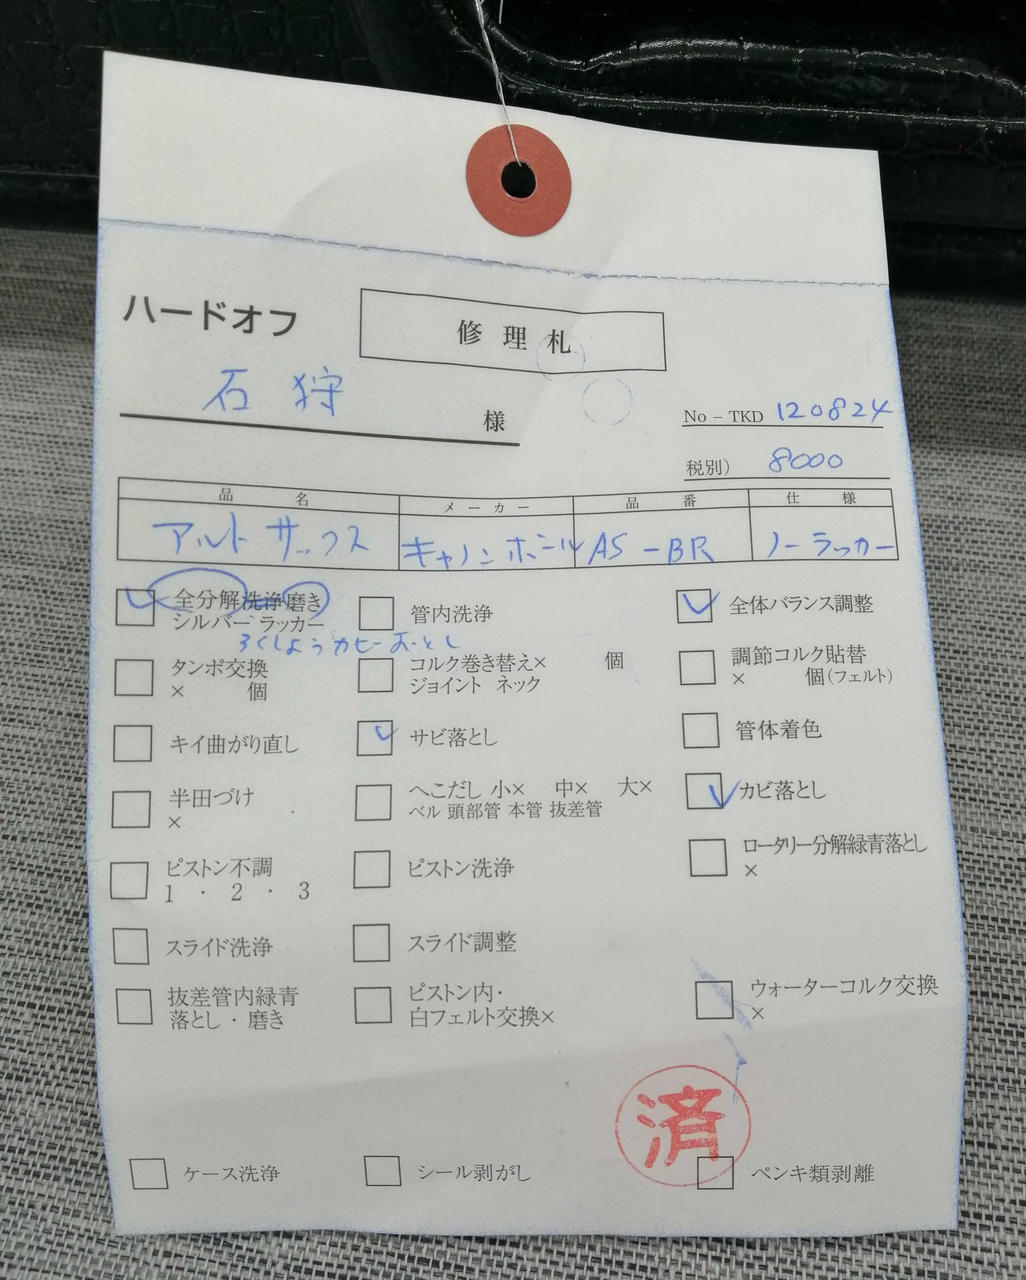 ハードオフ
修理札
石狩 様
No－TKD 120824
税別） 8000
品名 メーカー 品番 仕様
アルトサックス キャノンボール AS－BR ノーラッカー
全分解洗浄磨き
シルバー ラッカー
ろくしょうカビーおとし
管内洗浄
全体バランス調整
タンポ交換
× 個
コルク巻き替え× 個
ジョイント ネック
調節コルク貼替
× 個（フェルト）
キイ曲がり直し
サビ落とし
管体着色
半田づけ
×
へこだし 小× 中× 大×
ベル 頭部管 本管 抜差管
カビ落とし
ピストン不調
1 ・ 2 ・ 3
ピストン洗浄
ロータリー分解緑青落とし
×
スライド洗浄
スライド調整
抜差管内緑青
落とし・磨き
ピストン内・
白フェルト交換×
ウォーターコルク交換
×
済
ケース洗浄
シール剥がし
ペンキ類剥離